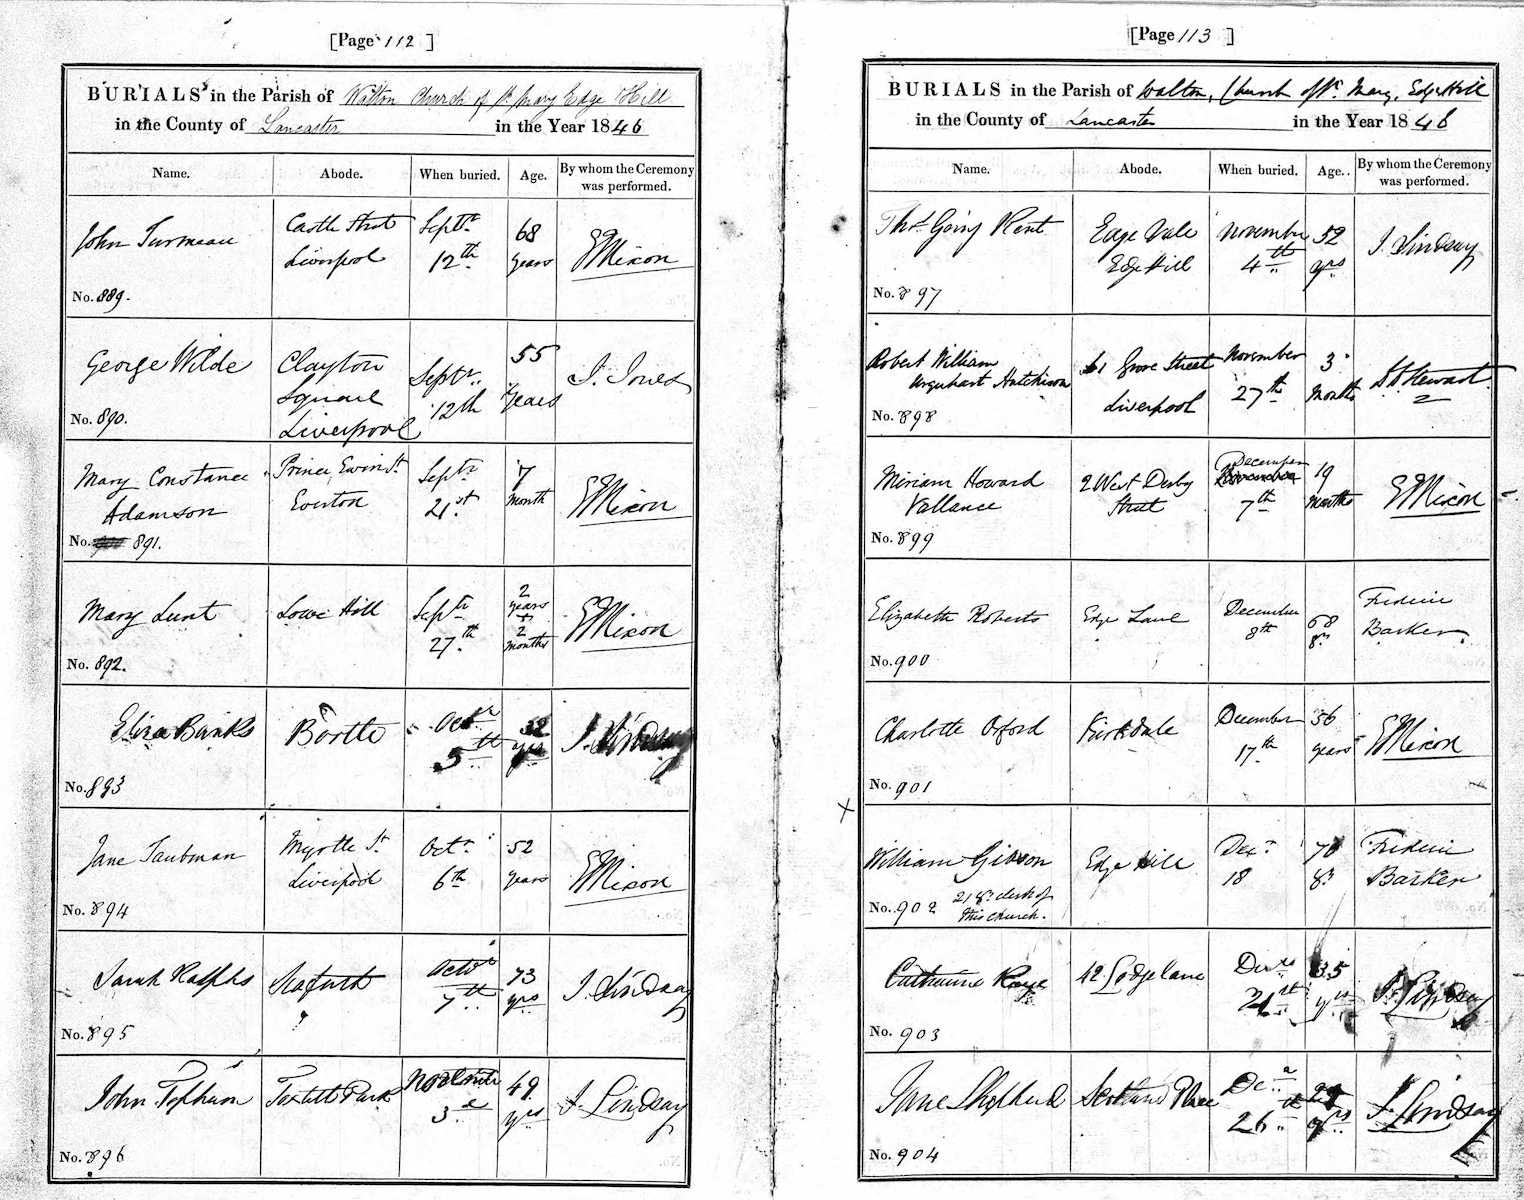 [Page 112 ]
BURIALS in the Parish of Walton Church of St. Mary Edge Hill
in the County of Lancaster in the Year 1846
Name. Abode. When buried. Age. By whom the Ceremony was performed.
John
Castle Street
Liverpool
Septr.
12th
68
years
No. 889.
George Wilde
Clayton
Square
Liverpool
Septr.
12th
55
Years
J. Jones
No. 890.
Mary Constance
Adamson
Prince Edwin St
Everton
Septr.
21st
7
month
No. 891.
Mary Lunt
Lowe Hill
Septr
27th
2
years
+
2
months
No. 892.
Eliza Banks
Bootle
Octr
5th
32
yrs
J. Lindsay
No. 893
Jane Taubman
Myrtle St
Liverpool
Octr.
6th
52
years
No. 894
Sarah Ralphs
Seaforth
Octr
7th
73
yrs
J. Lindsay
No. 895
John Topham
Toxteth Park
November
3d
49
yrs
J. Lindsay
No. 896
[Page 113 ]
BURIALS in the Parish of Walton, Church of St. Mary, Edge Hill
in the County of Lancaster in the Year 1846
Name. Abode. When buried. Age. By whom the Ceremony was performed.
Thos. Kent
Edge Vale
Edge Hill
November
4th
52
yrs
J. Lindsay
No. 897
Robert William
Urquhart Hutchison
61 Grove Street
Liverpool
November
27th
3
Months
Stewart.
No. 898
Miriam Howard
Vallance
2 West Derby
Street
December
7th
19
months
No. 899
Elizabeth Roberts
Edge Lane
December
8th
68
Frederic
Barker.
No. 900
Charlotte Orford
Kirkdale
December
17th
56
years
No. 901
William Gibson
Edge Hill
Decr
18
Frederic
Barker
No. 902 21 yrs. clerk of
this church.
Catherine Kaye
42 Lodge Lane
Decr
21st
35
yrs
J. Lindsay
No. 903
Jane Shepherd
Scotland Place
Decr
26th
yrs
J. Lindsay
No. 904